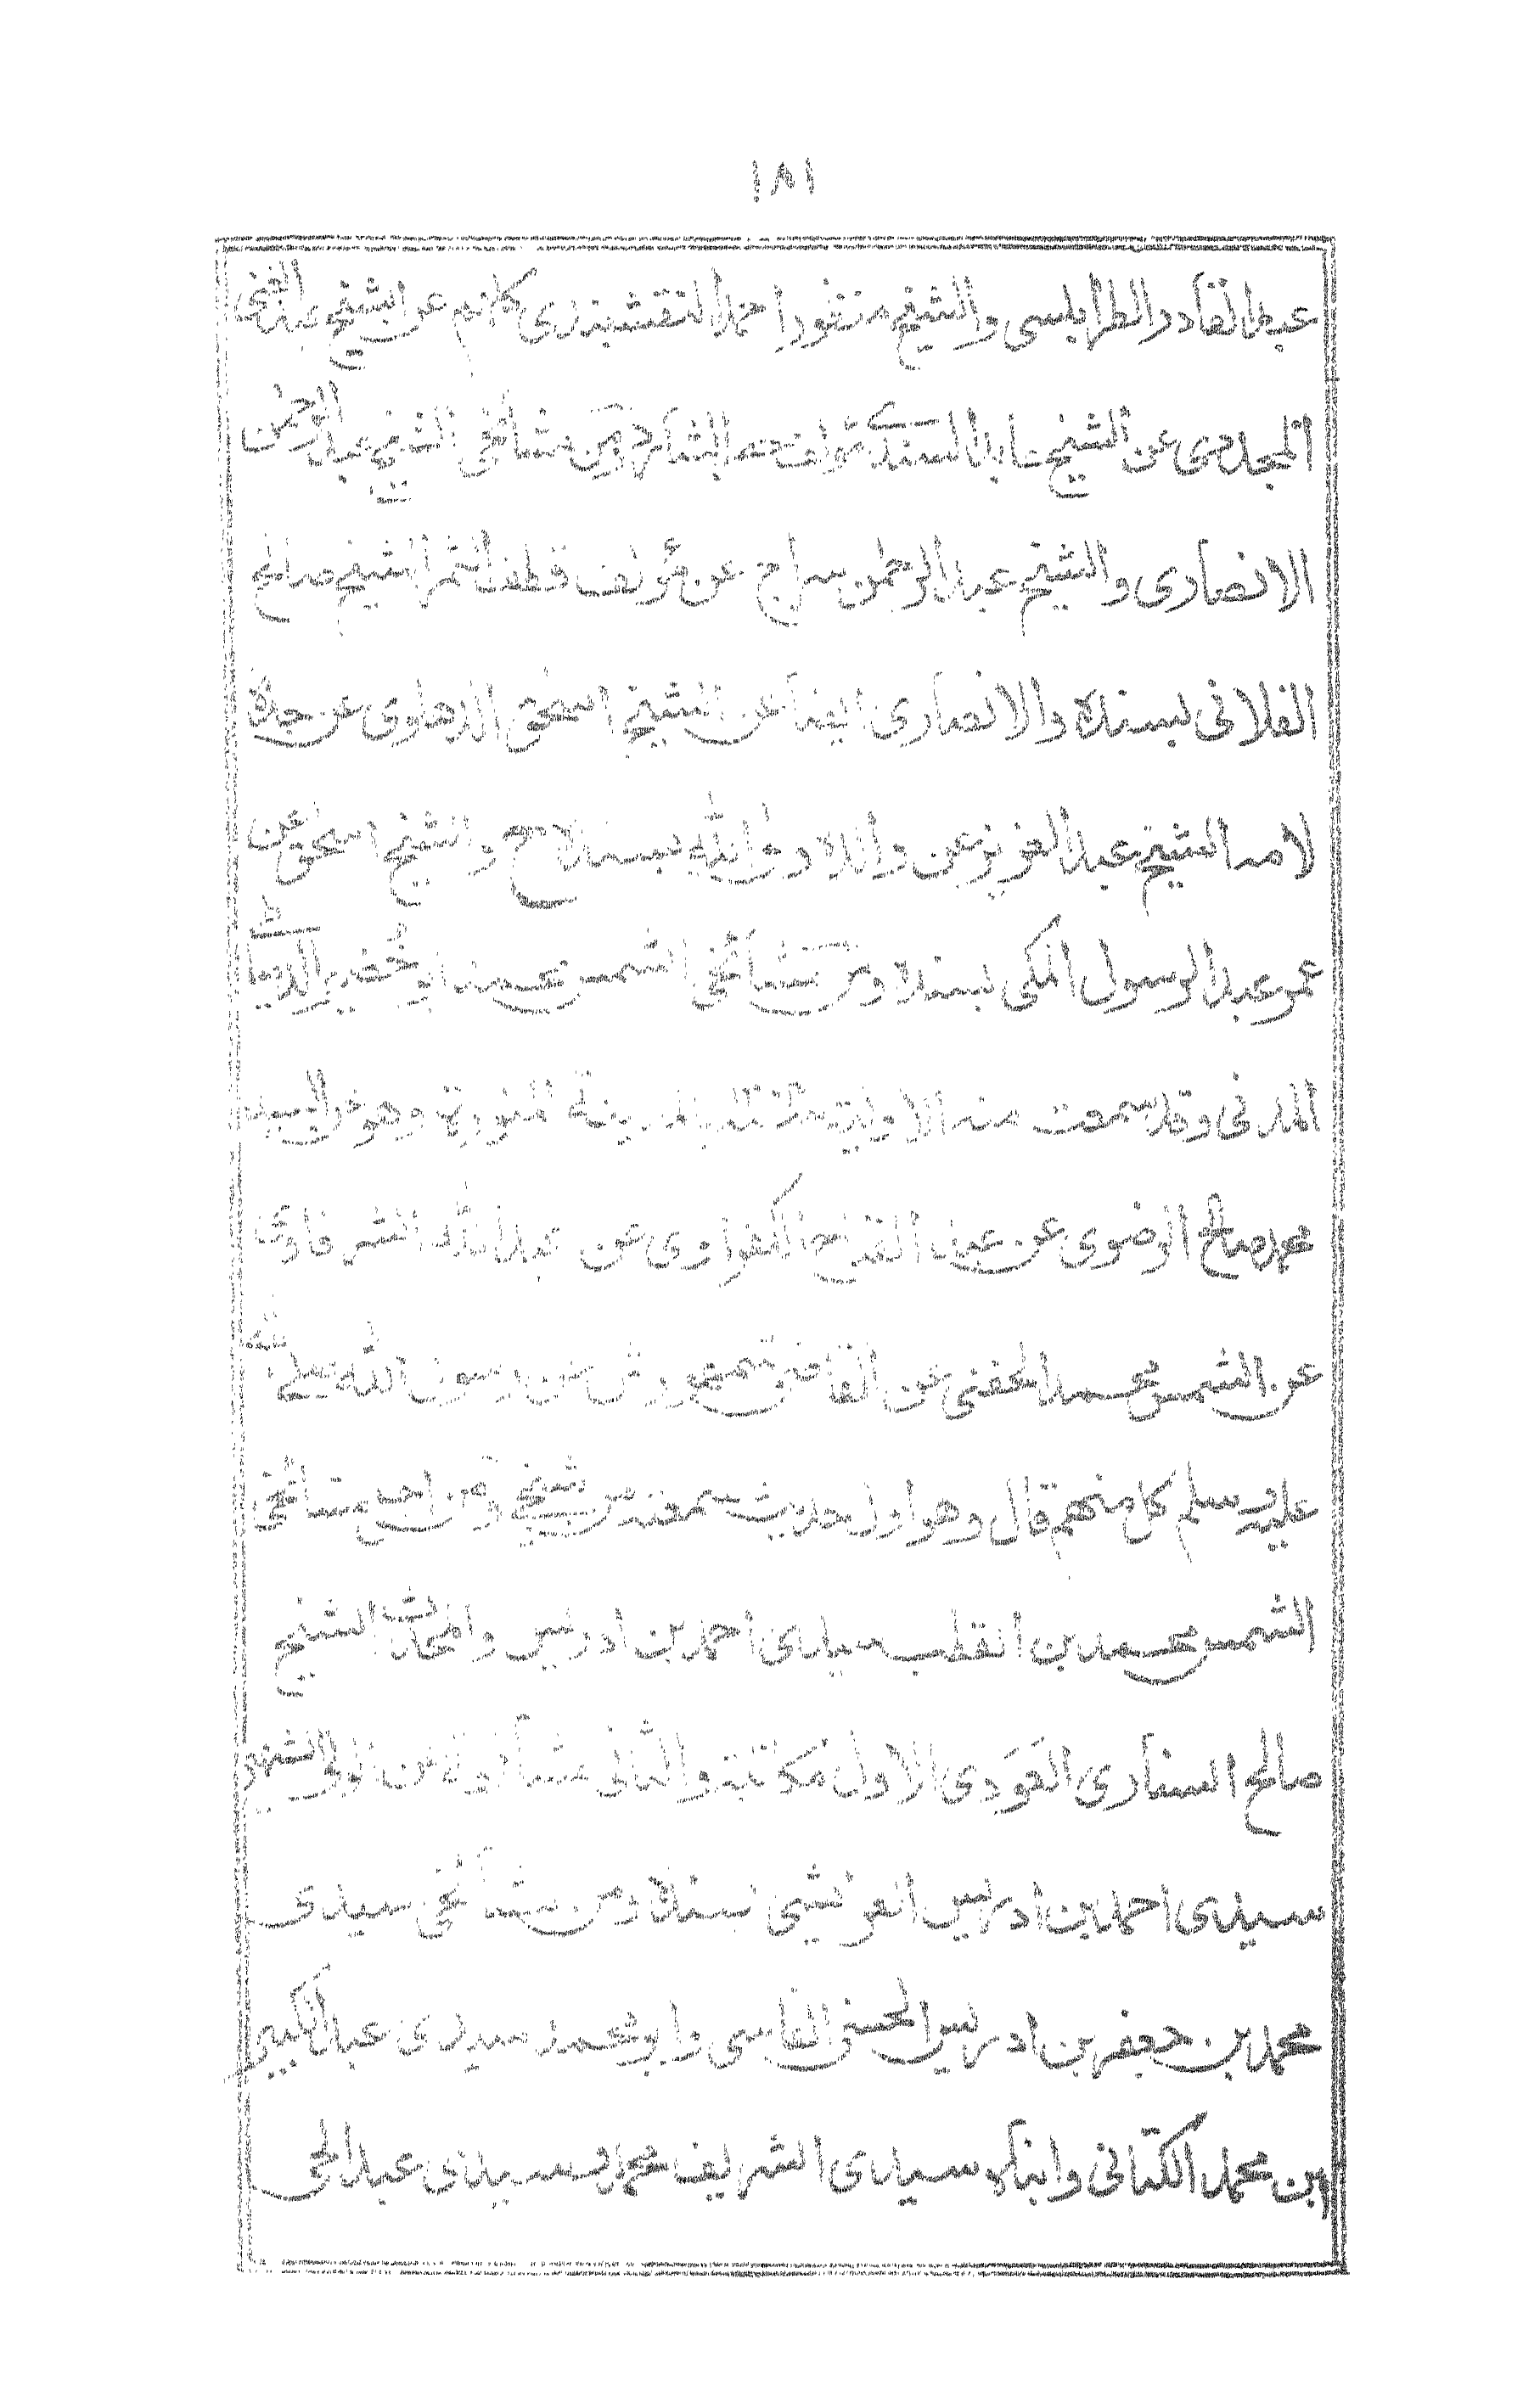 ١٨١
عبد القادر الطرابلسى والشيخ منفور احمد النقشبندى كلهم عن الشيخ عبد الغنى
المجددى عن الشيخ عابد السندى مؤلف حصر الشارد ومن مشائخى الشيخ عبد الرحمن
الانصارى والشيخ عبد الرحمن سراج عن مؤلف قطف الثمر الشيخ صالح
الفلانى بسنده والانصارى ايضا عن الشيخ اسحق الدهلوى عن جده
لامه الشيخ عبد العزيز عن والده ولى الله بسنده ح والشيخ اسحق عن
عمر عبد الرسول المكى بسنده ومن مشائخى الشمس محمد ابو خضير الدمياطى
المدنى وقد سمعت منه الاولية بالمدينة المنورة وهو عن السيد
محمد صالح الرضوى عن رفيع القندهارى عن عبد الله الشرقاوى
عن الشمس محمد الحفنى عن القاضى شمهورش عن رسول الله صلى الله
عليه وسلم كل منهم قال وهو اول حديث سمعته من شيخى ومن اجل مشائخى
الشمس محمد بن القطب سيدى احمد بن ادريس والمحدث الشيخ
صالح السنارى العَوَدى الاول مكاتبة والثانى مشافهة عن الولى الشهير
سيدى احمد بن ادريس العرائشى بسنده ومن مشائخى سيدى
محمد بن جعفر بن ادريس الحسنى الفاسى وابو محمد سيدى عبد الكبير
ابن محمد الكتانى وابناه سيدى الشريف محمد وسيدى عبد الحى